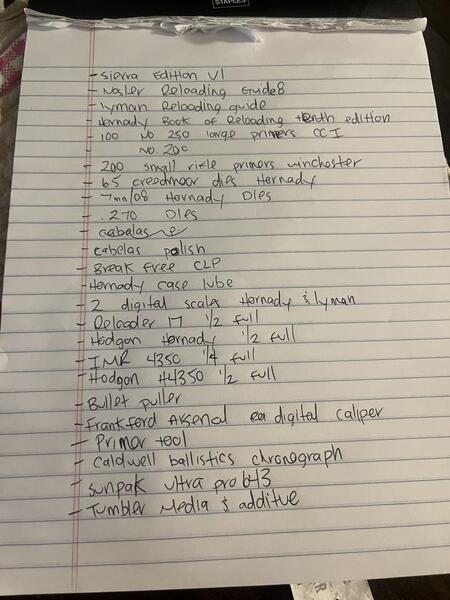 STAPLES
- Sierra Edition VI
- Nosler Reloading Guide 8
- lyman Reloading guide
- Hornady Book of Reloading tenth edition
- 100 No 250 large primers CCI
No. 200
- 200 small rifle primers winchester
- 6.5 creedmoor dies Hornady
- 7mm/08 Hornady Dies
- .270 Dies
- cabalas
cabelas polish
- Break Free CLP
- Hornady case lube
- 2 digital scales Hornady & lyman
- Reloader 17 1/2 full
- Hodgon Hornady 1/2 full
- IMR 4350 1/4 full
- Hodgon H4350 1/2 full
- Bullet puller
- Frankford Arsenal digital caliper
- Primer tool
- Caldwell ballistics chronograph
- sunpak ultra pro 643
- Tumbler Media & additive